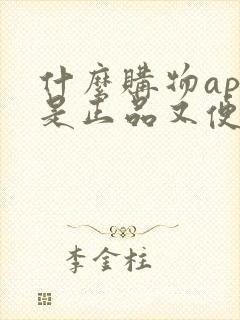 什麼購物ap
是正品又便
李金柱